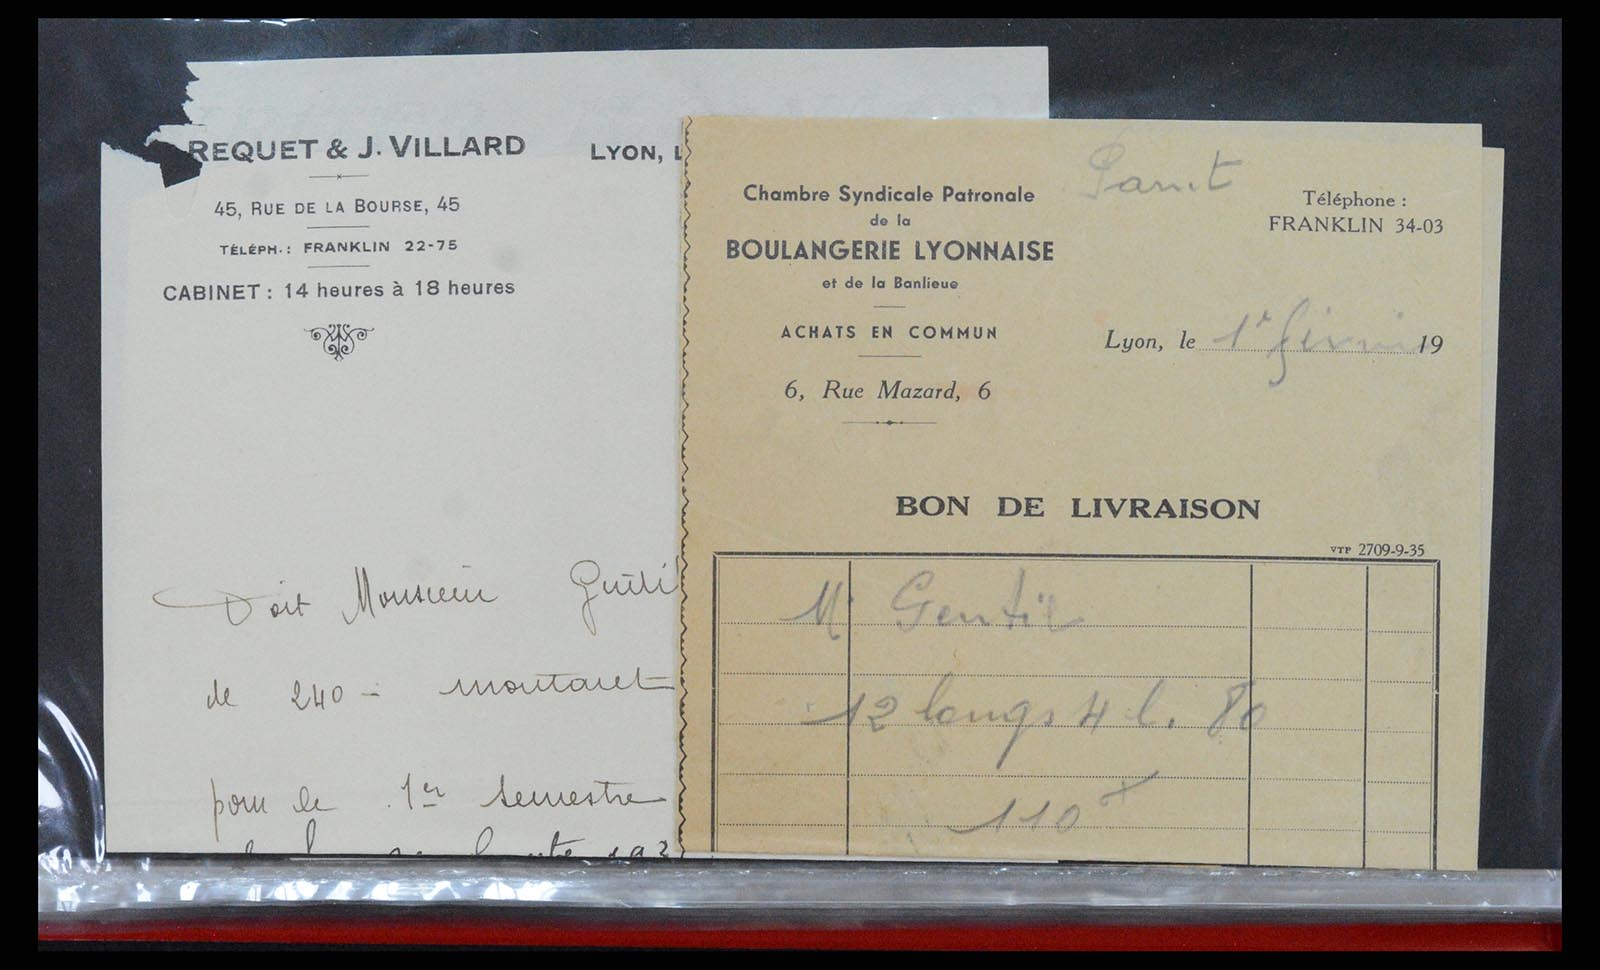 REQUET & J. VILLARD
LYON, L
45, RUE DE LA BOURSE, 45
TÉLÉPH. : FRANKLIN 22-75
CABINET : 14 heures à 18 heures
Doit Monsieur
de 240 - montant
pour le 1er semestre
Chambre Syndicale Patronale
de la
BOULANGERIE LYONNAISE
et de la Banlieue
ACHATS EN COMMUN
6, Rue Mazard, 6
Téléphone :
FRANKLIN 34-03
Lyon, le 1r février 19
BON DE LIVRAISON
VTP 2709-9-35
Mr Gentil
12 longs 4 l. 80
110